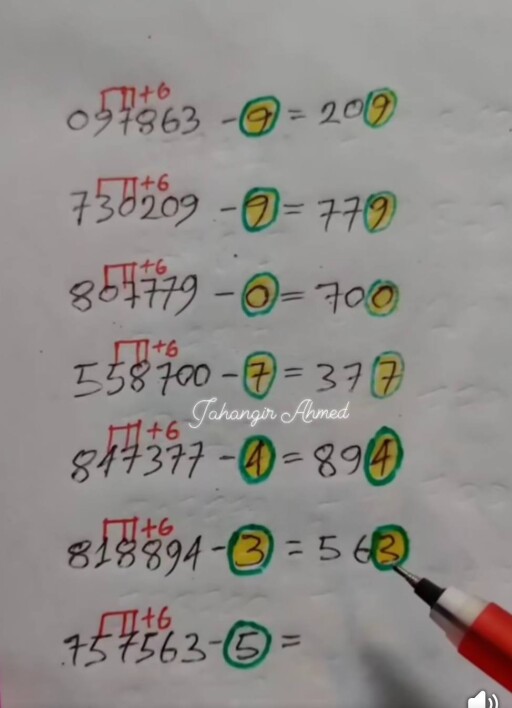 +6
097863 - 9 = 209
+6
730209 - 9 = 779
+6
807779 - 0 = 700
+6
558700 - 7 = 377
Jahangir Ahmed
+6
847377 - 4 = 894
+6
818894 - 3 = 563
+6
757563 - 5 =